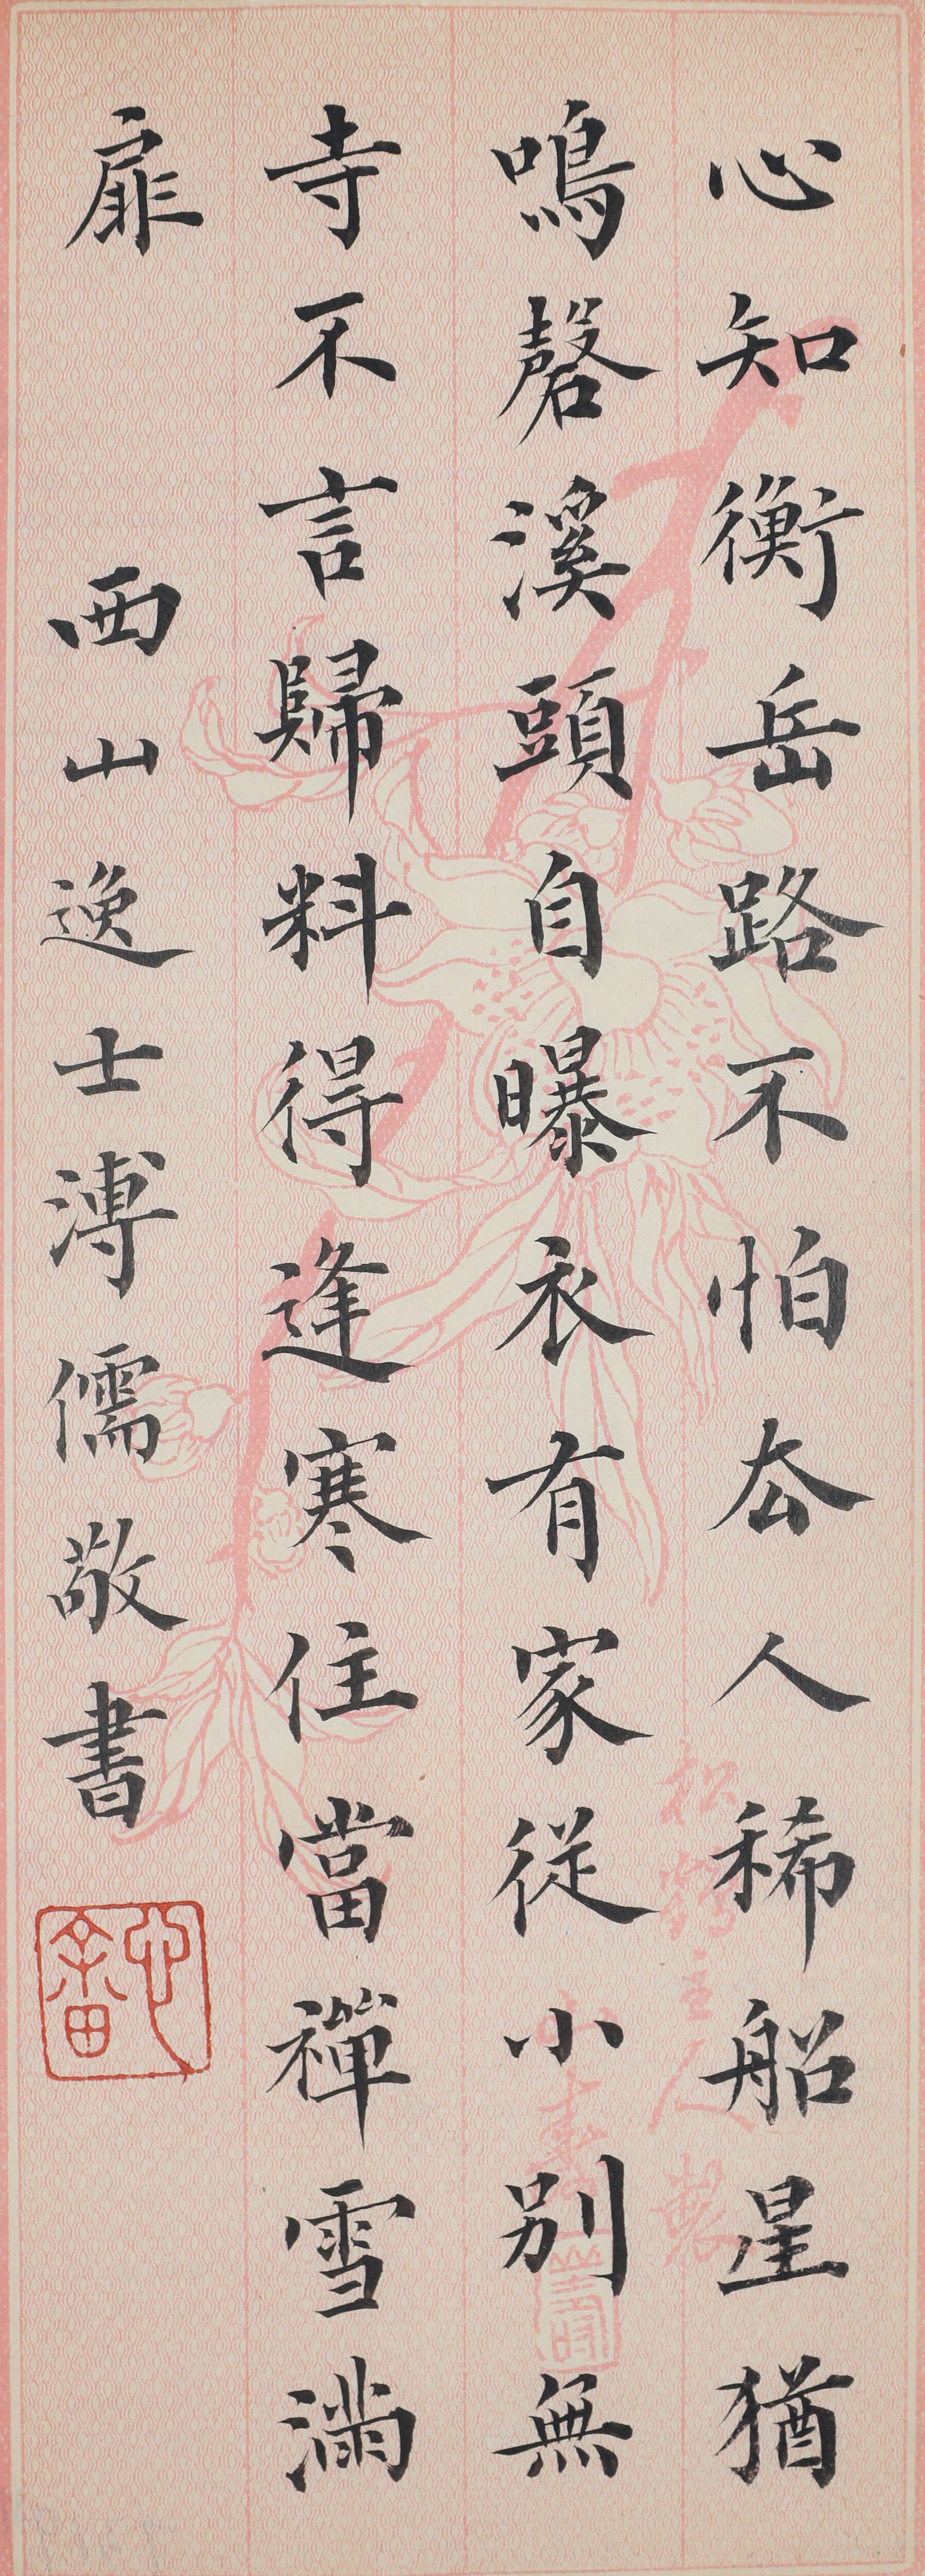 心知衡岳路不怕厺人稀船星猶
鳴磬溪頭自曝衣有家從小別無
寺不言歸料得逢寒住當禪雪滿
扉 西山逸士溥儒敬書
心畬
松鶴主人製